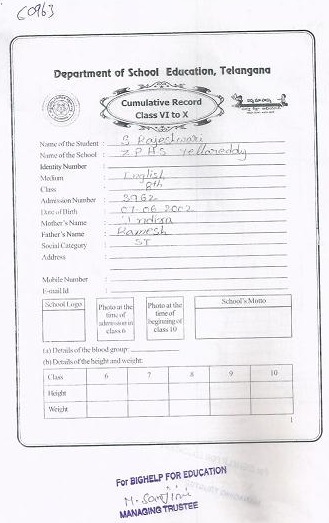 C0963
Department of School Education, Telangana
Cumulative Record
Class VI to X
Name of the Student : S. Rajeshwari
Name of the School : Z P H S Yellareddy
Identity Number :
Medium : English
Class : 8th
Admission Number : 3962
Date of Birth : 07-06-2002
Mother's Name : Indira
Father's Name : Ramesh
Social Category : ST
Address :
Mobile Number :
E-mail Id :
School Logo
Photo at the time of admission in class 6
Photo at the time of beginning of class 10
School's Motto
(a) Details of the blood group:
(b) Details of the height and weight:
Class 6 7 8 9 10
Height
Weight
1
For BIGHELP FOR EDUCATION
MANAGING TRUSTEE